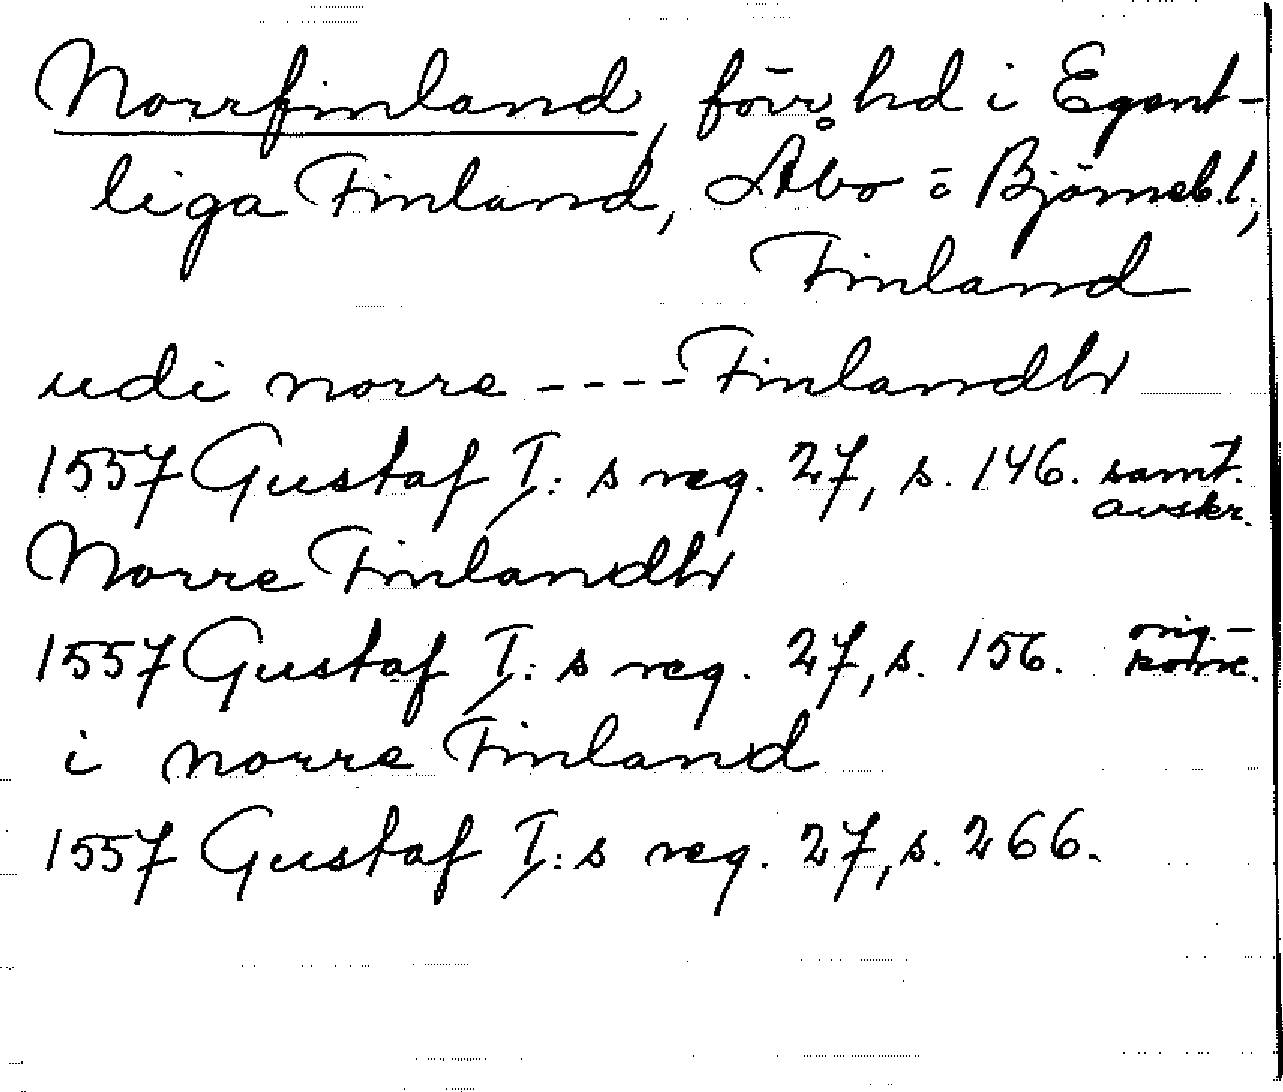 Norrfinland, förr hd i Egent-
liga Finland, Åbo o Björneb.l.,
Finland
udi norre ---- Finlandh
1557 Gustaf I:s reg. 27, s. 146. samt.
avskr.
Norre Finlandh
1557 Gustaf I:s reg. 27, s. 156. orig.-
konc.
i norre Finland
1557 Gustaf I:s reg. 27, s. 266.